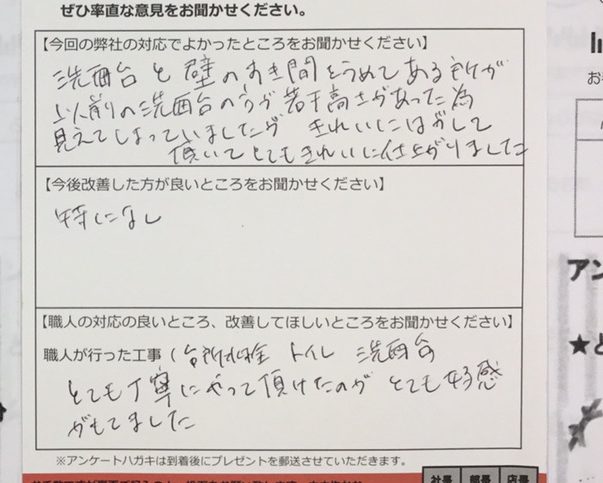 ぜひ率直な意見をお聞かせください。
【今回の弊社の対応でよかったところをお聞かせください】
洗面台と壁のすき間をうめてある所が
以前の洗面台の方が若干高さがあった為
見えてしまっていましたが きれいにはがして
頂いてとてもきれいに仕上がりました
【今後改善した方が良いところをお聞かせください】
特になし
【職人の対応の良いところ、改善してほしいところをお聞かせください】
職人が行った工事(台所水栓 トイレ 洗面台
とても丁寧にやって頂けたのが とても好感
がもてました
※アンケートハガキは到着後にプレゼントを郵送させていただきます。
社長 部長 店長
お
アン
★